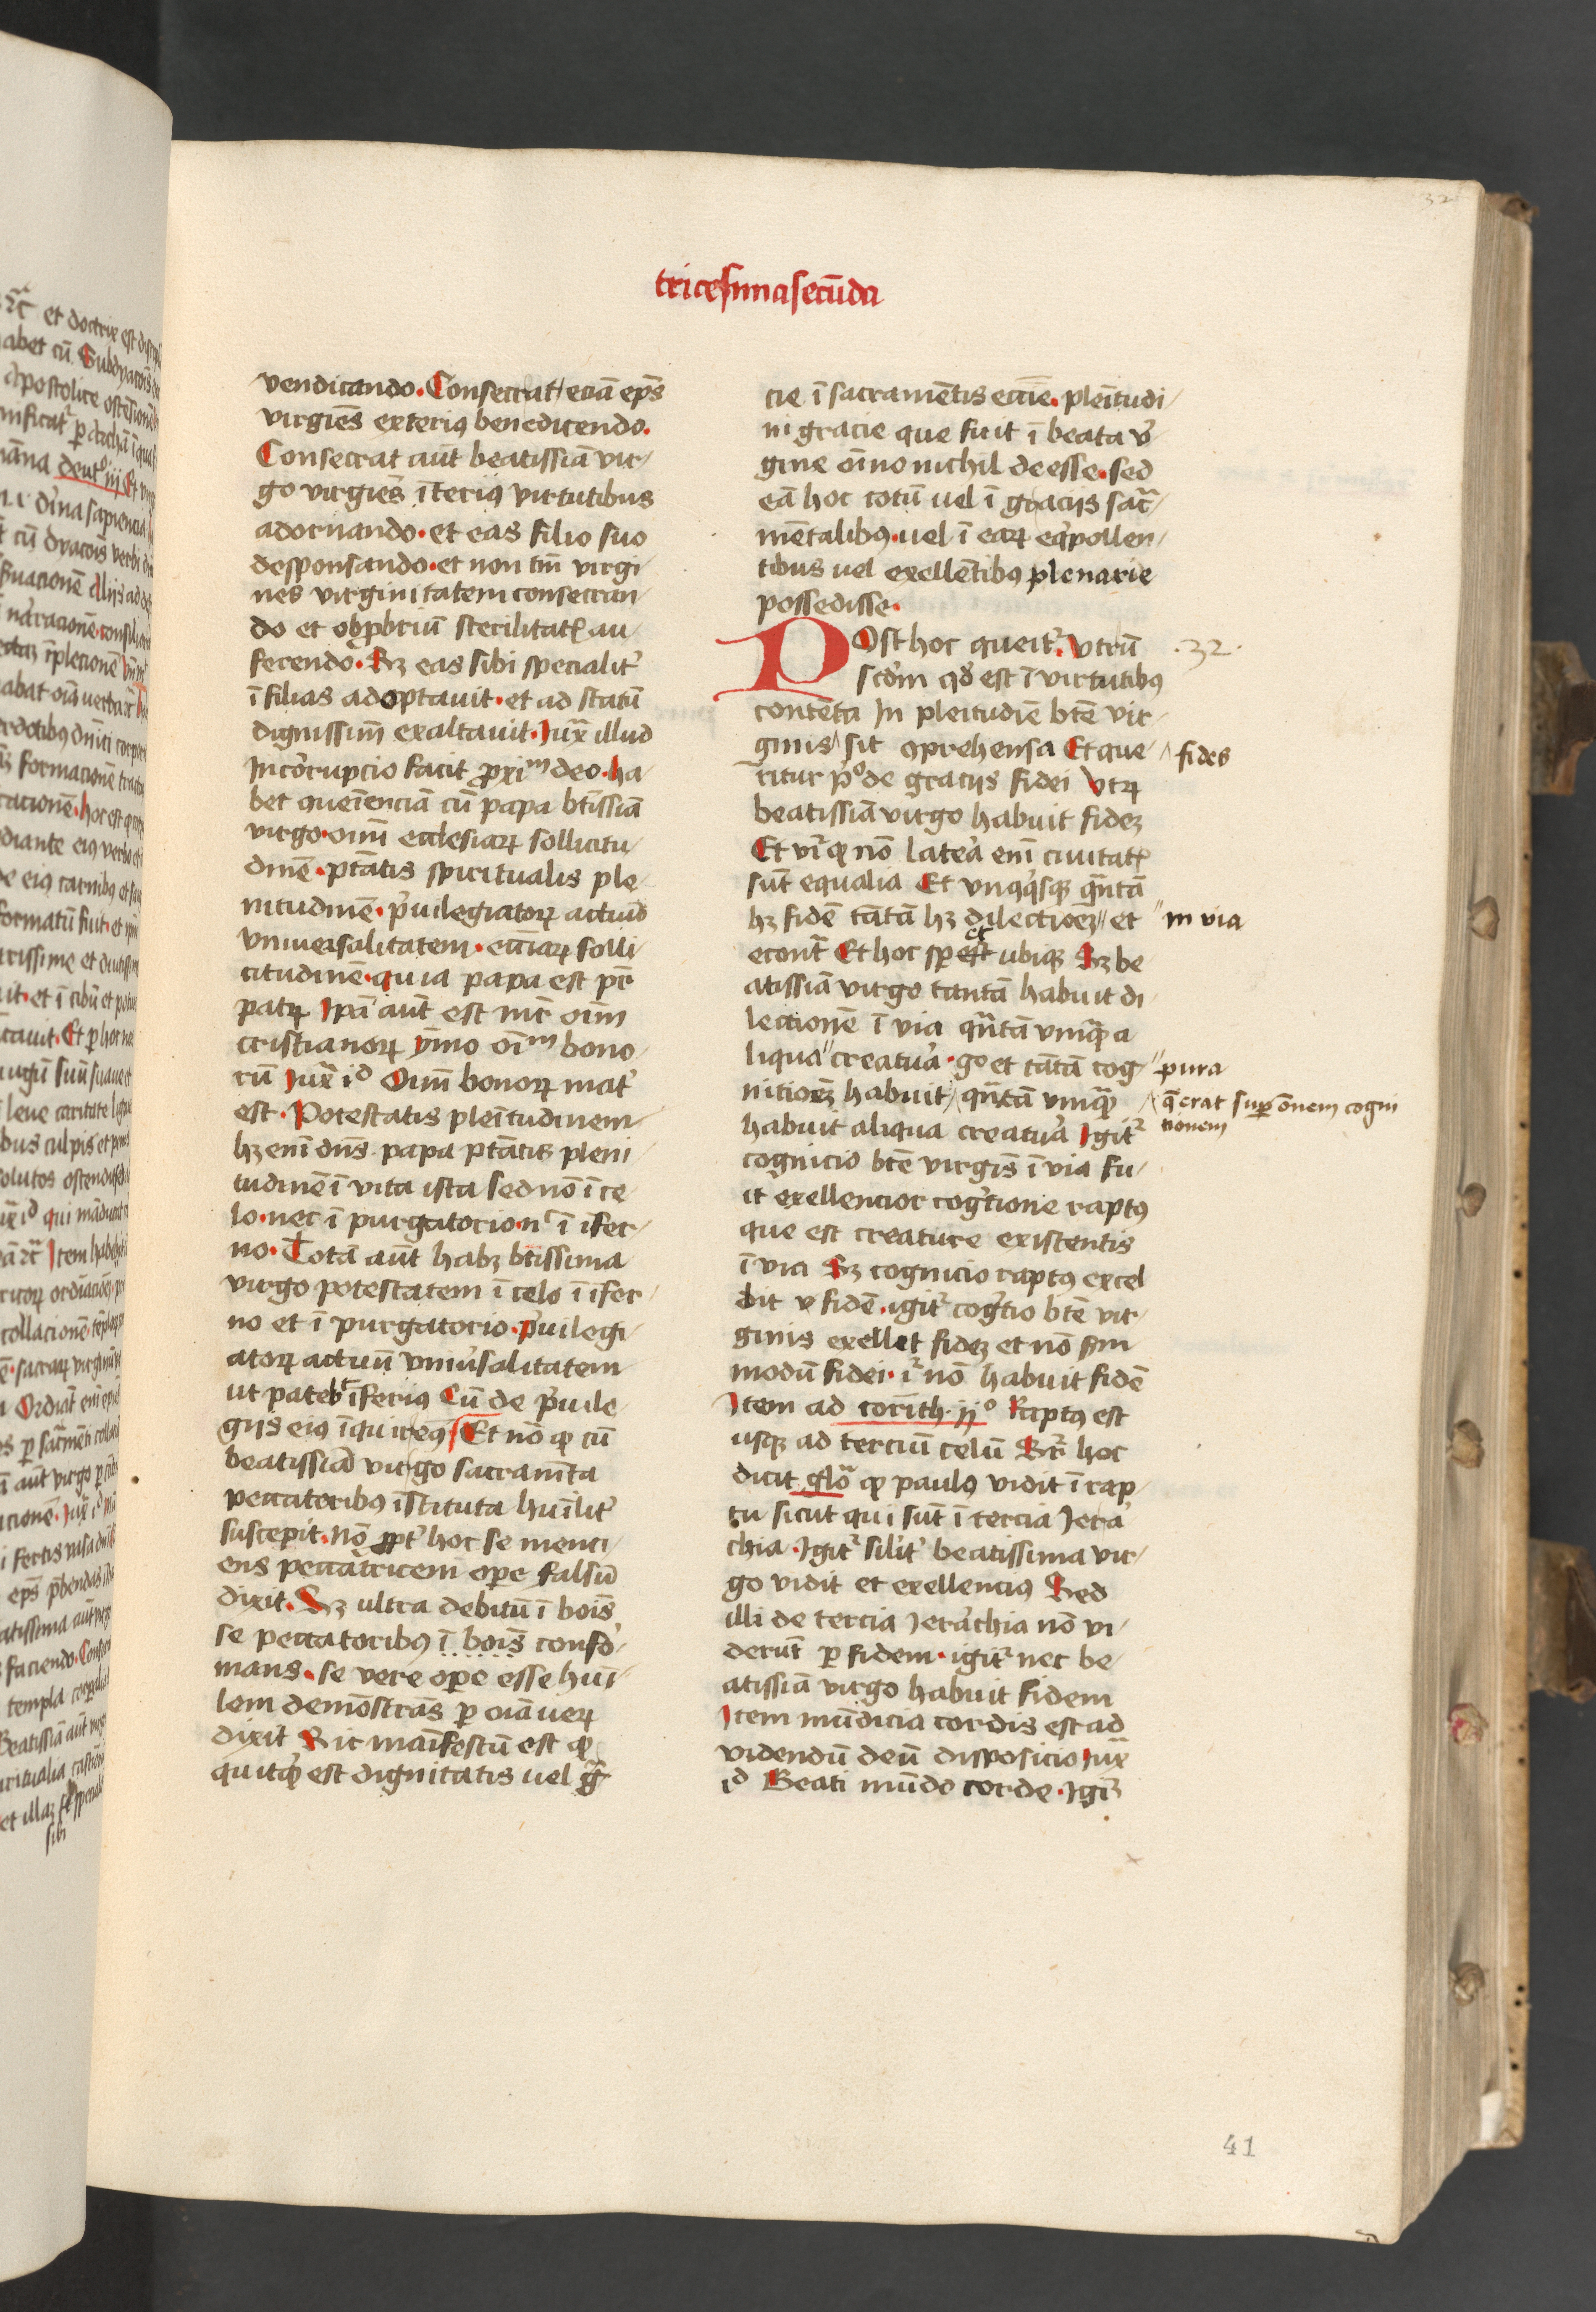 32
tricesima secūda
vendicando. Consecrat eciā ep̄s
virgīes exterius benedicendo.
Consecrat aūt beatissīa vir
go virgīes īterius virtutibus
adornando. et eas filio suo
desponsando. et non tm̄ virgi
nes virginitatem consecran
do et obprobriū sterilitatis au
ferendo. Sz eas sibi specialit᷑
ī filias adoptavit. et ad statū
dignissim̄ exaltavit. Jux̄ illud
Incorrupcio facit proxim deo. ha
bet queīenciā cū papa bt̄issīa
virgo. oīm ecclesiaꝝ sollicitu
dinē. pt̄atis spiritualis ple
nitudinē. pͥuilegiatoꝝ actuū
vniversalitatem. ecc̄iaꝝ solli
citudinē. quia papa est pr̄
patꝝ Ip̄a aūt est mr̄ oīm
cristianoꝝ ymo oīm bono
rū Jux̄ id Oīm bonoꝝ mat᷑
est. Potestatis pleītudinem
hꝫ enī dn̄s papa pt̄atis pleni
tudinē ī vita ista sed nō ī ce
lo. nec ī purgatorio. nͨ ī īfer
no. Totā aūt habꝫ bt̄issima
virgo potestatem ī celo ī īfer
no et ī purgatorio. pͥuilegi
atoꝝ actuū vniu᷑salitatem
ut patebt īferius Cū de pͥuile
gijs eius īquireꝰ Et nō ꝙ cū
beatissīa virgo sacramēta
peccatoribꝰ īstituta huīlit᷑
suscepit. nō ꝓpt᷑ hoc se menci
ens peccatricem opere falsū
dixit. Sꝫ ultra debitū ī boīs
se peccatoribꝰ ī boīs confor
mans. se vere opere esse huī
lem demōstrās ꝑ oīa ueꝝ
dixit Sic maīfestū est ꝙ
quitqͥd est dignitatis uel gr̄a
cie ī sacramētis ecc̄ie. pleītudi
ni gracie que fuit ī beata v᷑
gine oīno nichil deesse. sed
eā hoc totū uel ī graciis sacr̄
mētalibꝰ. uel ī eaꝝ eqͥpollen
tibus uel exellētibꝰ plenarie
possedisse.
Ost hoc querit᷑. Vtrū
scd̄m qd̄ est ī virtutibus
contēta In pleītudīe btē vir
ginis sit ꝯprehensa Et que
ritur pͦ de graciis fidei Vtꝝ
beatissīa virgo habuit fideꝫ
Et vr̄ ꝙ nō latera enī civitatis
sūt equalia Et vnꝰqͥsqꝫ qn̄tā
hꝫ fidē tātā hꝫ dilectioeꝫ et
econt̄ Et hoc sp̄ et ubiqꝫ Sꝫ be
atissīa virgo tantā habuit di
lectionē ī via qn̄tā vmqͣ a
liqua creatura. go et tātā cog
nitioēꝫ habuit qn̄tā vmqͣ
habuit aliqua creatura Igit᷑
cognicio btē virgīs ī via fu
it exellencior cogͥtione raptꝰ
que est creature existentis
ī via Sꝫ cognicio raptꝰ excel
lit fidē. igit᷑ cogͥtio btē vir
ginis exellet fideꝫ et nō sm̄
modū fidei. iͬ nō habuit fidē
Item ad corīth. ijº Raptꝰ est
usqꝫ ad terciū celū Sr̄ hoc
dicit glō ꝙ paulꝰ vidit ī rap
tu sicut qui sūt ī tercia Jerar
chia. Igit᷑ silit᷑ beatissima vir
go vidit et exellenciꝰ Sed
illi de tercia Jerarchia nō vi
derūt ꝑ fidem. igit᷑ nec be
atissīa virgo habuit fidem
Item mūdicia cordis est ad
videndū deū disposicio Jux̄
id Beati mūdo corde. Igit᷑
.32.
fides
in via
pura
q̄ erat super om̄nem cogni
tionem
41